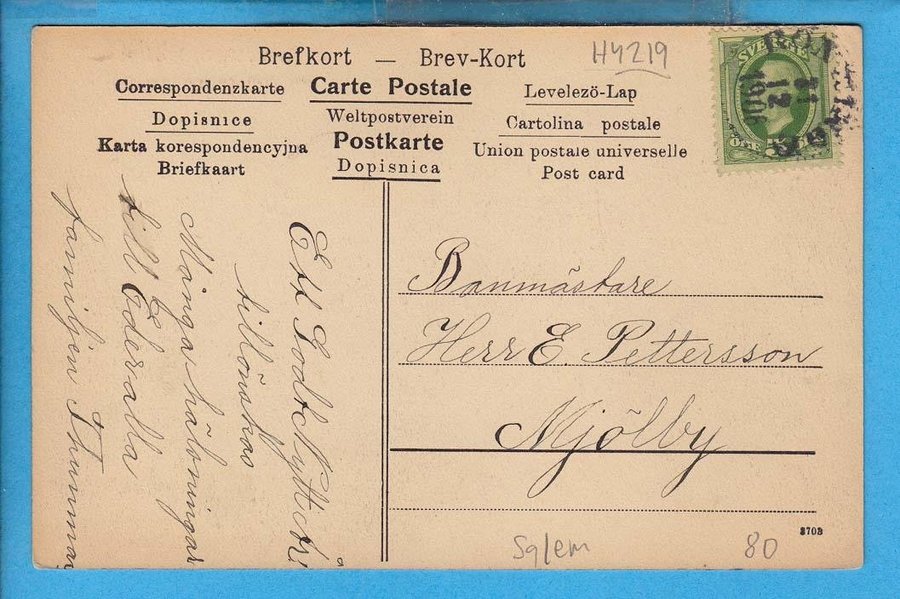 Brefkort — Brev-Kort
H4219
Correspondenzkarte
Carte Postale
Levelezö-Lap
Dopisnice
Weltpostverein
Cartolina postale
Karta korespondencyjna
Postkarte
Union postale universelle
Briefkaart
Dopisnica
Post card
SVERIGE
31
12
190
Ett Godt Nytt År
tillönskas
Många hälsningar
till Eder alla
familjen Thunman
Banmästare
Herr E. Pettersson
Mjölby
3703
80